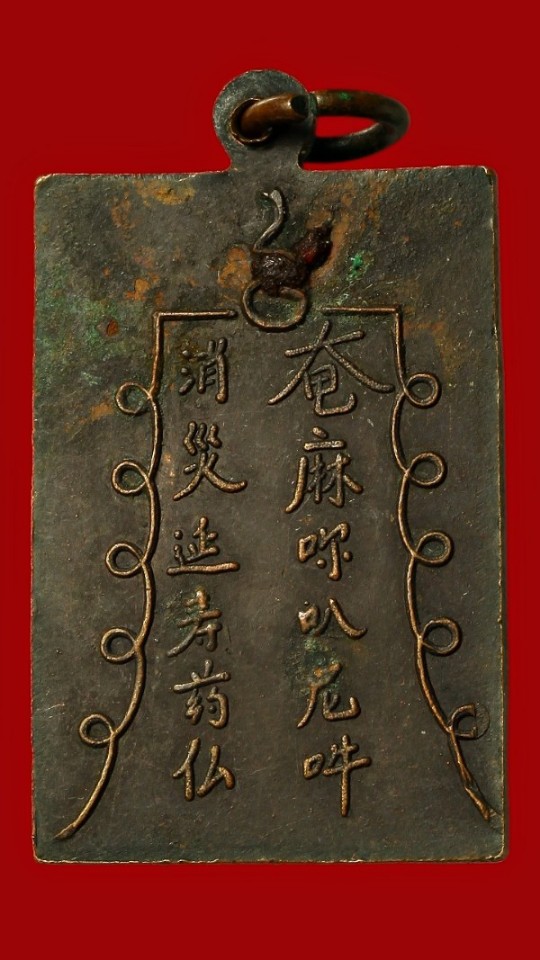 奄麻咪叭尼吽
消災延寿药仏